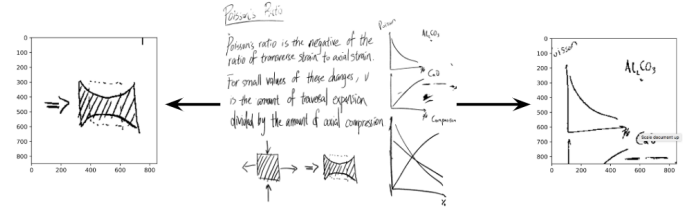 0
100
200
300
400
500
600
700
800
0 200 400 600 800
Poisson's Ratio
Poisson's ratio is the negative of the
ratio of transverse strain to axial strain.
For small values of these changes, ν
is the amount of traversal expansion
divided by the amount of axial compression
Al₂CO₃
CaO
Comparison
%
0
100
200
300
400
500
600
700
800
0 200 400 600 800
Al₂CO₃
Scale document up